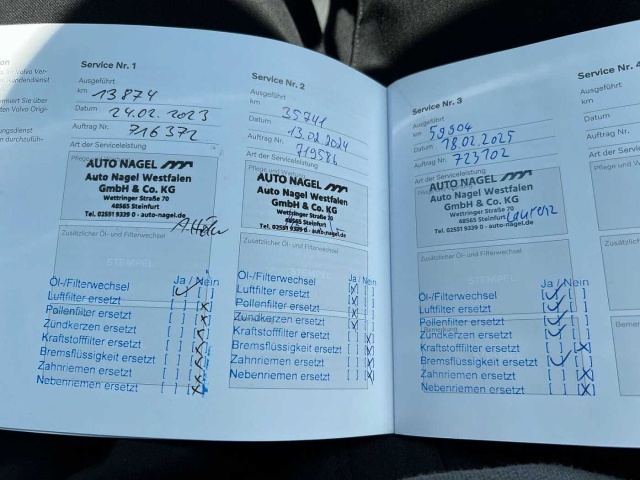 on
hr Volvo Ver-
Kundendienst
rmiert Sie über
ten Volvo Origi-
ungsdienst
n durchzufüh-
Service Nr. 1
Ausgeführt
km 13874
Datum 24.02.2023
Auftrag Nr. 716372
Art der Serviceleistung
AUTO NAGEL
Auto Nagel Westfalen
GmbH & Co. KG
Wettringer Straße 70
48565 Steinfurt
Tel. 02551 9339 0 - auto-nagel.de
Zusätzlicher Öl- und Filterwechsel
STEMPEL
Öl-/Filterwechsel Ja / Nein
Luftfilter ersetzt
Pollenfilter ersetzt
Zündkerzen ersetzt
Kraftstofffilter ersetzt
Bremsflüssigkeit ersetzt
Zahnriemen ersetzt
Nebenriemen ersetzt
Service Nr. 2
Ausgeführt
km 35741
Datum 13.02.2024
Auftrag Nr. 719586
Art der Serviceleistung
Pflege und Wartung
AUTO NAGEL
Auto Nagel Westfalen
GmbH & Co. KG
Wettringer Straße 70
48565 Steinfurt
Tel. 02551 9339 0 - auto-nagel.de
Zusätzlicher Öl- und Filterwechsel
Öl-/Filterwechsel Ja / Nein
Luftfilter ersetzt
Pollenfilter ersetzt
Zündkerzen ersetzt
Kraftstofffilter ersetzt
Bremsflüssigkeit ersetzt
Zahnriemen ersetzt
Nebenriemen ersetzt
Service Nr. 3
Ausgeführt
km 59304
Datum 18.02.2025
Auftrag Nr. 723702
Art der Serviceleistung
Pflege und Wartung
AUTO NAGEL
Auto Nagel Westfalen
GmbH & Co. KG
Wettringer Straße 70
48565 Steinfurt
Tel. 02551 9339 0 - auto-nagel.de
Laurenz
Zusätzlicher Öl- und Filterwechsel
STEMPEL
Öl-/Filterwechsel Ja / Nein
Luftfilter ersetzt
Pollenfilter ersetzt
Zündkerzen ersetzt
Kraftstofffilter ersetzt
Bremsflüssigkeit ersetzt
Zahnriemen ersetzt
Nebenriemen ersetzt
Service Nr. 4
Ausgeführt
km
Datum
Auftrag Nr.
Art der Se
Pflege und
Zusätzlich
Bemer